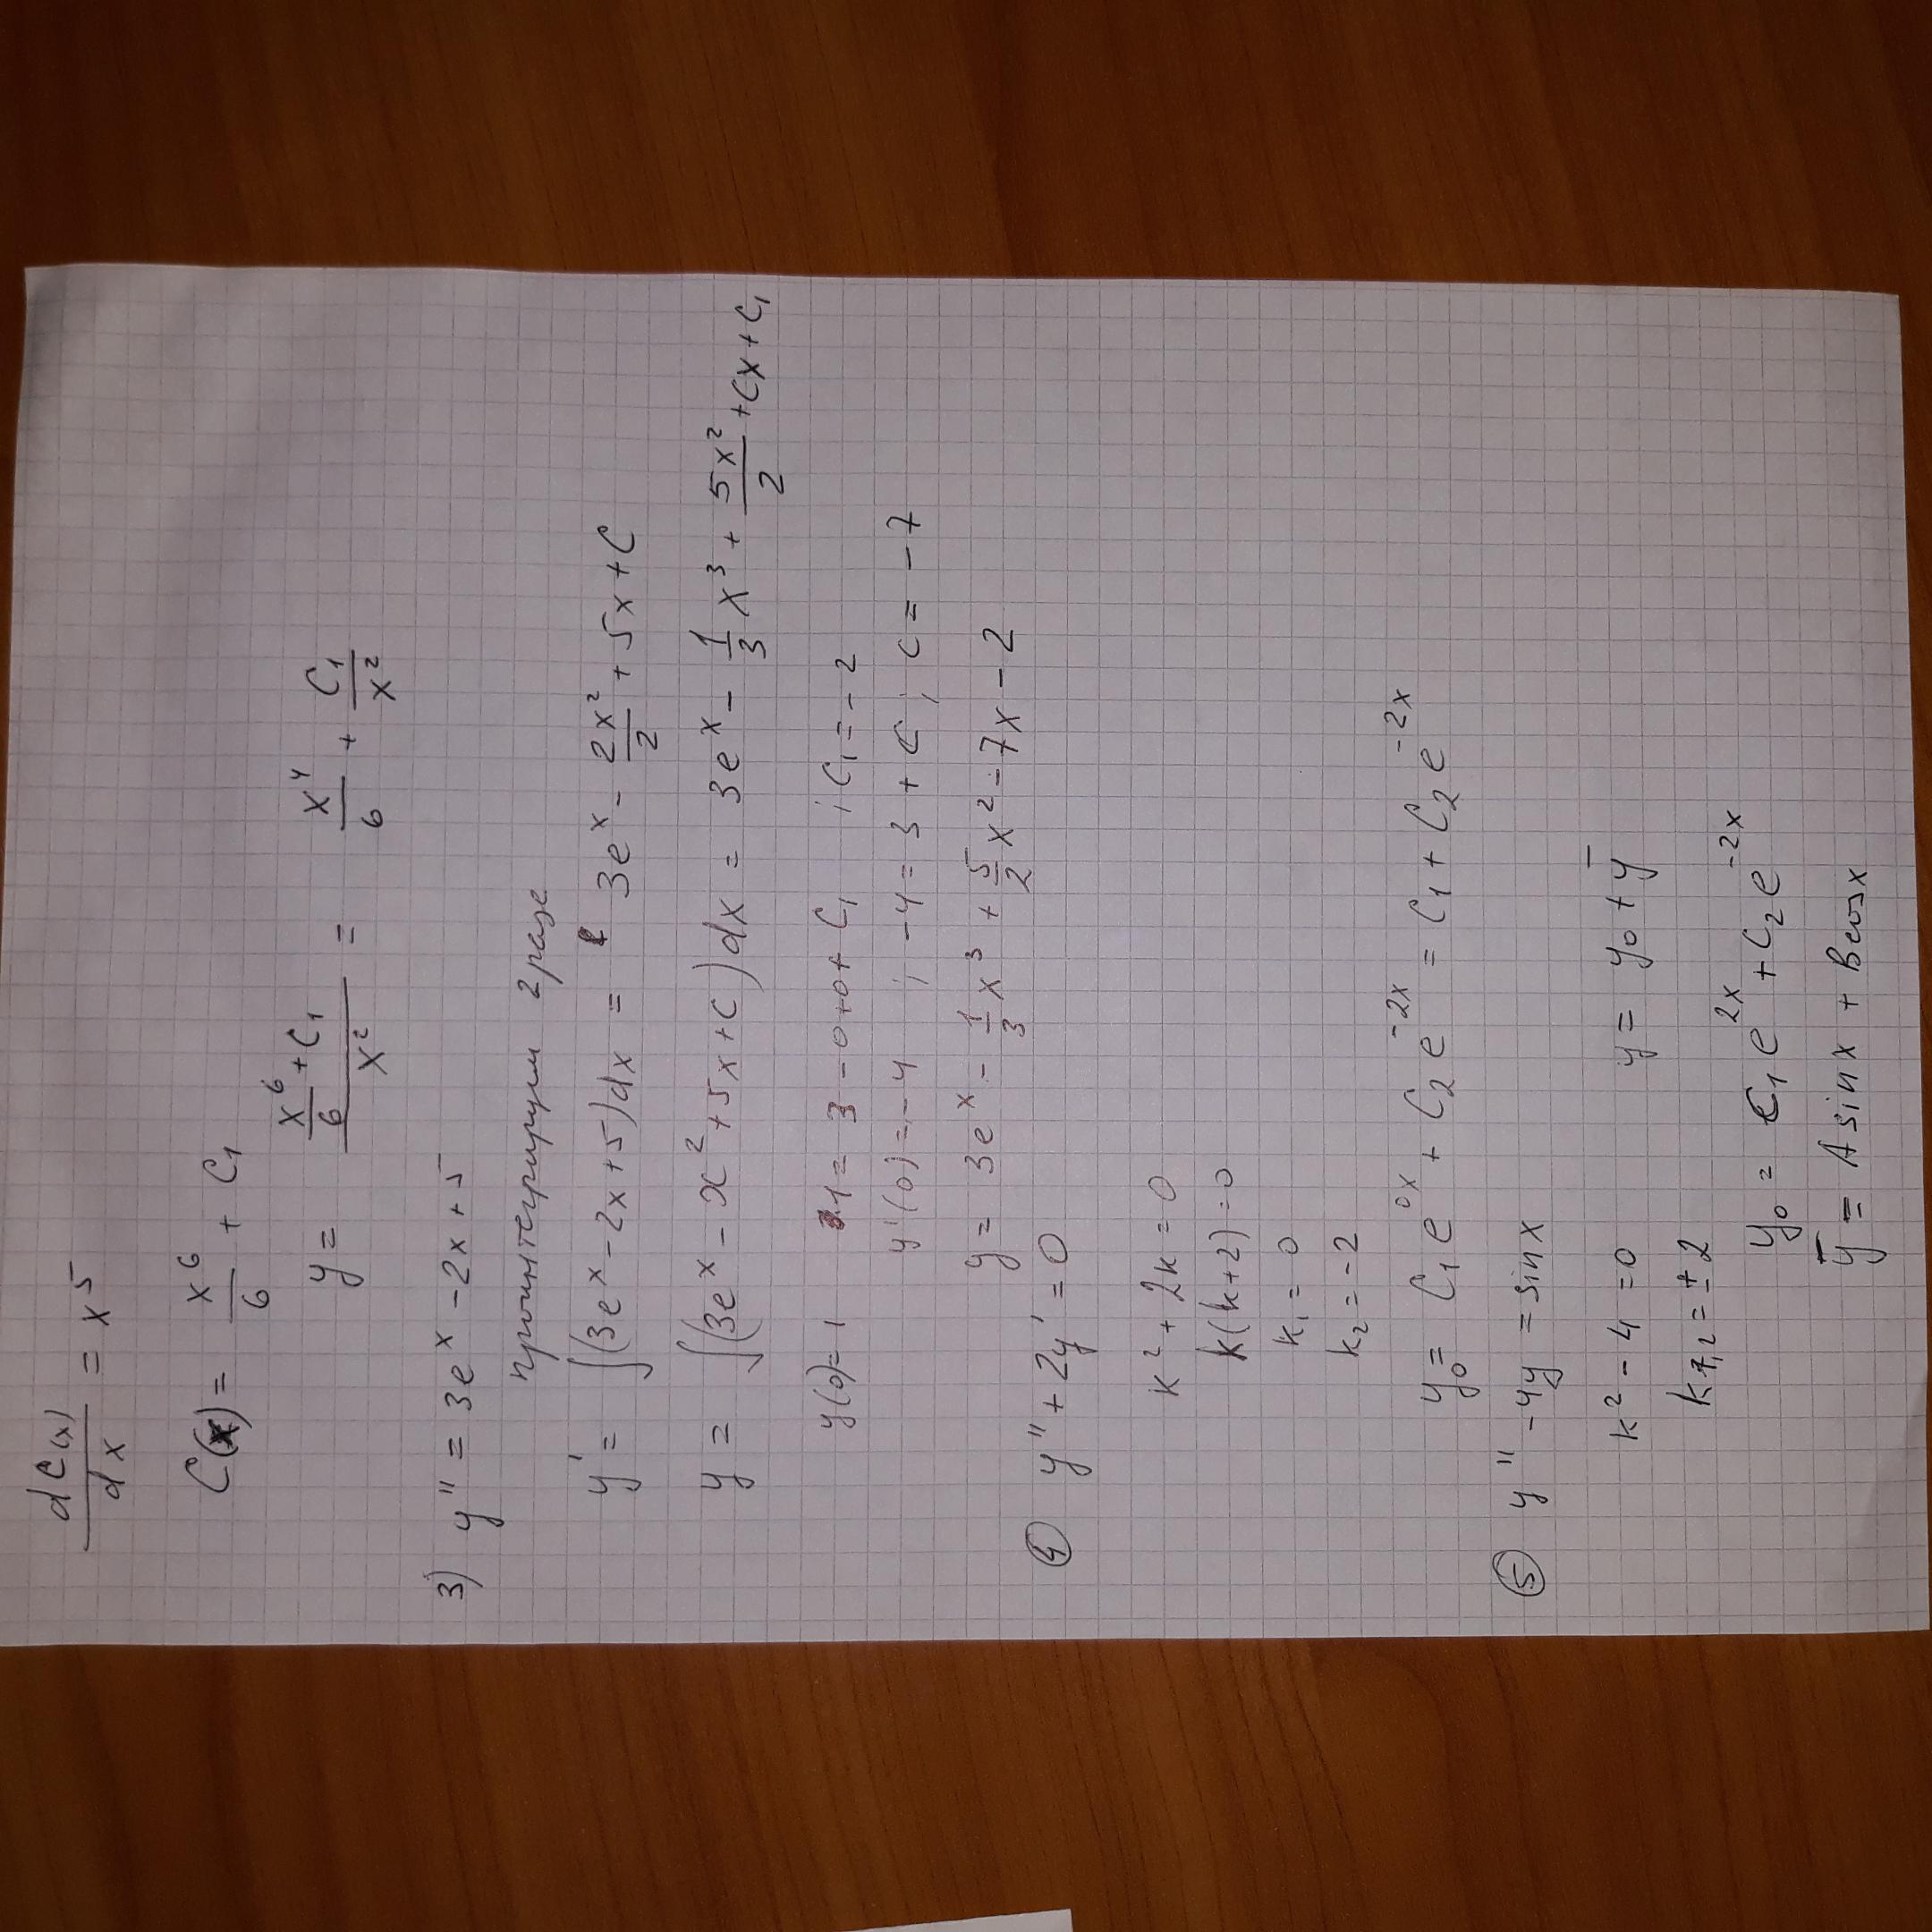 dC(x)/dx = x⁵
C(x) = x⁶/6 + C₁
y = (x⁶/6 + C₁)/x² = x⁴/6 + C₁/x²
3) y'' = 3eˣ - 2x + 5
проинтегрируем 2 раза
y' = ∫(3eˣ - 2x + 5)dx = 3eˣ - 2x²/2 + 5x + C
y = ∫(3eˣ - x² + 5x + C)dx = 3eˣ - 1/3 x³ + 5x²/2 + Cx + C₁
y(0) = 1 1 = 3 - 0 + 0 + C₁ ; C₁ = -2
y'(0) = -4 ; -4 = 3 + C ; C = -7
y = 3eˣ - 1/3 x³ + 5/2 x² - 7x - 2
④ y'' + 2y' = 0
k² + 2k = 0
k(k+2) = 0
k₁ = 0
k₂ = -2
y₀ = C₁e⁰ˣ + C₂e⁻²ˣ = C₁ + C₂e⁻²ˣ
⑤ y'' - 4y = sinx
k² - 4 = 0 y = y₀ + ȳ
k₁,₂ = ±2
y₀ = C₁e²ˣ + C₂e⁻²ˣ
ȳ = A sinx + B cosx